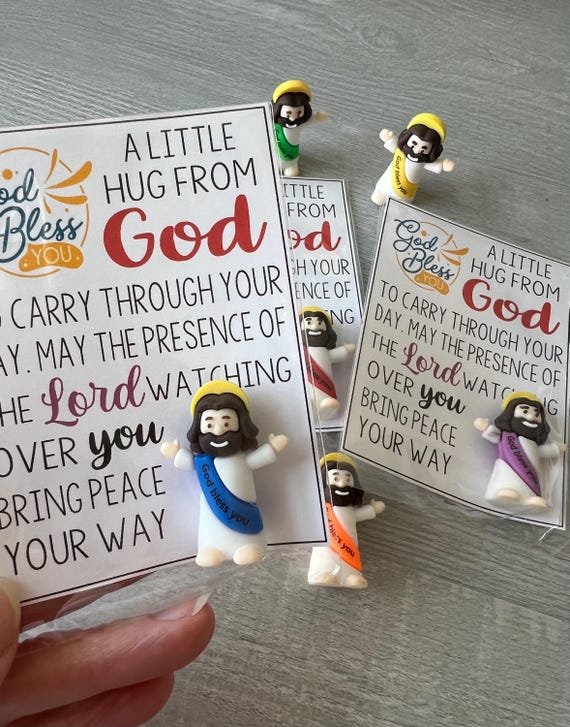 God
Bless
YOU
A LITTLE
HUG FROM
God
CARRY THROUGH YOUR
MAY THE PRESENCE OF
THE Lord WATCHING
OVER you
BRING PEACE
YOUR WAY
God bless you
FROM
THE PRESENCE OF
God
Bless
YOU
A LITTLE
HUG FROM
God
TO CARRY THROUGH YOUR
DAY. MAY THE PRESENCE OF
the Lord WATCHING
OVER you
BRING PEACE
YOUR WAY
God bless you